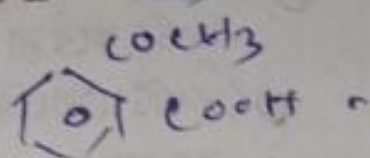 COCH3
COOH